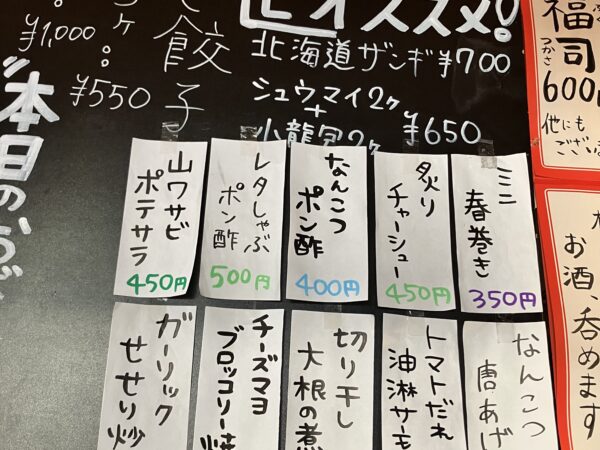 オススメ!
北海道ザンギ ¥700
シュウマイ2ヶ
+
小龍包2ヶ ¥650
餃子
¥1,000
ヶ
¥550
本日の
福司
つかさ
600円
他にも
ござい
お酒、呑めます
ミニ
春巻き
350円
炙り
チャーシュー
450円
なんこつ
ポン酢
400円
レタしゃぶ
ポン酢
500円
山ワサビ
ポテサラ
450円
なんこつ
唐あげ
トマトだれ
油淋サーモ
切り干し
大根の煮
チーズマヨ
ブロッコリー焼
ガーリック
せせり炒